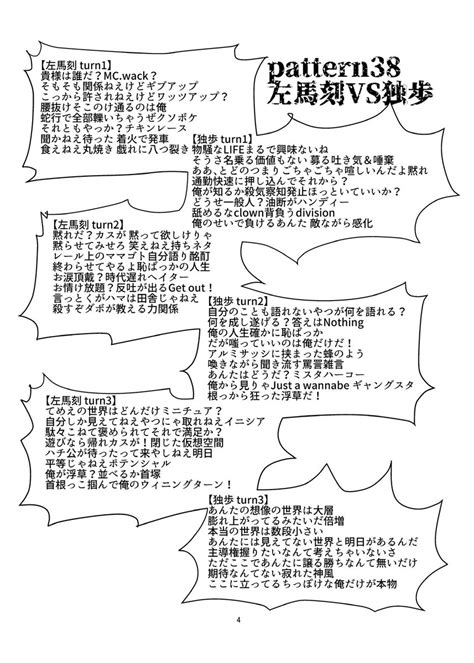 pattern38
左馬刻VS独歩
【左馬刻 turn1】
貴様は誰だ？MC.wack？
そもそも関係ねえけどギブアップ
こっから許されねえけどワッツアップ？
腰抜けそこのけ通るのは俺
蛇行で全部轢いちゃうぜクソボケ
それともやっか？チキンレース
聞かねえ待った 着火で発車
食えねえ丸焼き 戯れに八つ裂き
【独歩 turn1】
物騒なLIFEまるで興味ないね
そうさ名乗る価値もない 募る吐き気＆唾棄
ああ、とどのつまりごちゃごちゃ喧しいんだよ黙れ
通勤快速に押し込んでそれから？
俺が知るか殺気察知発止ほっといていいか？
どうせ一般人？油断がハンディー
舐めるなclown背負うdivision
俺のせいで負けるあんた 敵ながら感化
【左馬刻 turn2】
黙れだ？カスが 黙って欲しけりゃ
黙らせてみせろ 笑えねえ持ちネタ
レール上のママゴト自分語り酩酊
終わらせてやるよ恥ばっかの人生
お涙頂戴？時代遅れヘイター
お情け放題？反吐が出るGet out！
言っとくがハマは田舎じゃねえ
殺すぞダボが教える力関係
【独歩 turn2】
自分のことも語れないやつが何を語れる？
何を成し遂げる？答えはNothing
俺の人生確かに恥ばっか
だが嗤っていいのは俺だけだ！
アルミサッシに挟まった蜂のよう
喚きながら聞き流す罵詈雑言
あんたはどうだ？ミスタハーコー
俺から見りゃJust a wannabe ギャングスタ
根っから狂った浮草だ！
【左馬刻 turn3】
てめえの世界はどんだけミニチュア？
自分しか見えてねえやつにゃ取れねえイニシア
駄々こねて褒められてそれで満足か？
遊びなら帰れカスが！閉じた仮想空間
ハチ公が待ったって来やしねえ明日
平等じゃねえポテンシャル
俺が浮草？並べるか首塚
首根っこ掴んで俺のウィニングターン！
【独歩 turn3】
あんたの想像の世界は大層
膨れ上がってるみたいだ倍増
本当の世界は数段小さい
あんたには見えてない世界と明日があるんだ
主導権握りたいなんて考えちゃいないさ
ただここであんたに譲る勝ちなんて無いだけ
期待なんてない寂れた神風
ここに立ってるちっぽけな俺だけが本物
4